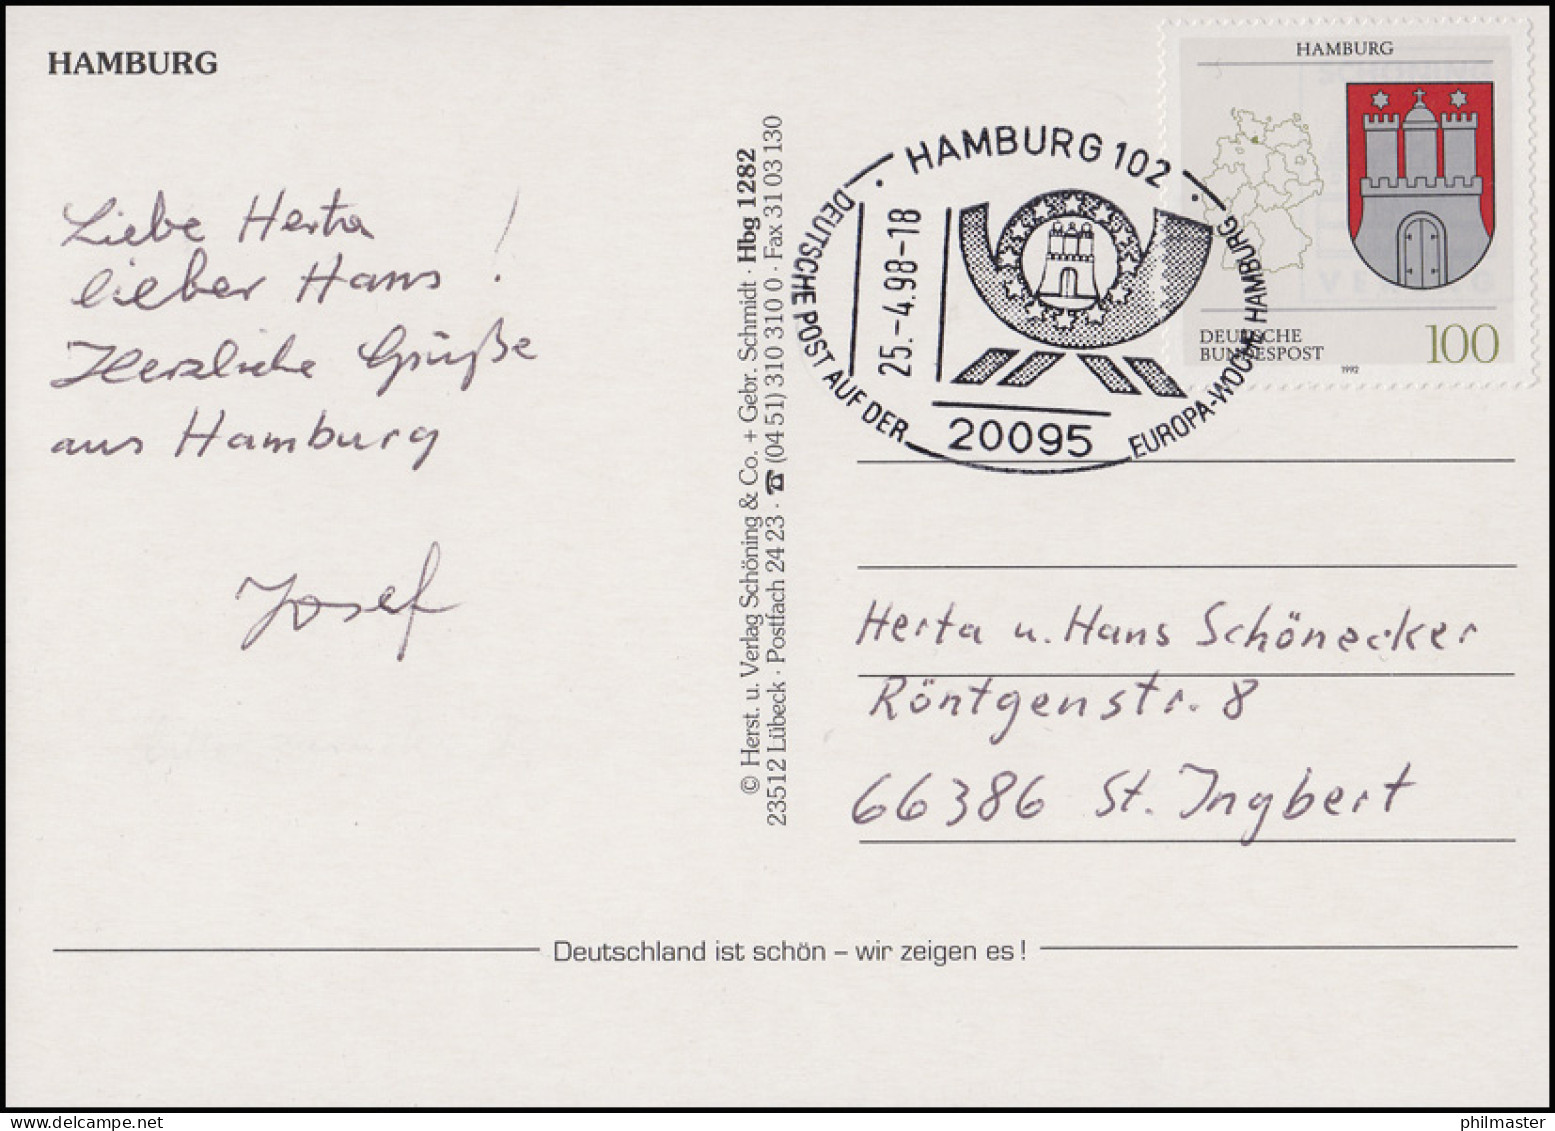 HAMBURG
Liebe Herta
lieber Hans !
Herzliche Grüße
aus Hamburg
Josef
© Herst. u. Verlag Schöning & Co. + Gebr. Schmidt · Hbg 1282
23512 Lübeck · Postfach 24 23 · ☎ (04 51) 310 310 0 · Fax 31 03 130
HAMBURG
DEUTSCHE
BUNDESPOST
100
1992
· HAMBURG 102 ·
25.-4.98-18
DEUTSCHE POST AUF DER EUROPA-WOCHE HAMBURG
20095
Herta u. Hans Schönecker
Röntgenstr. 8
66386 St. Ingbert
Deutschland ist schön – wir zeigen es !
philmaster